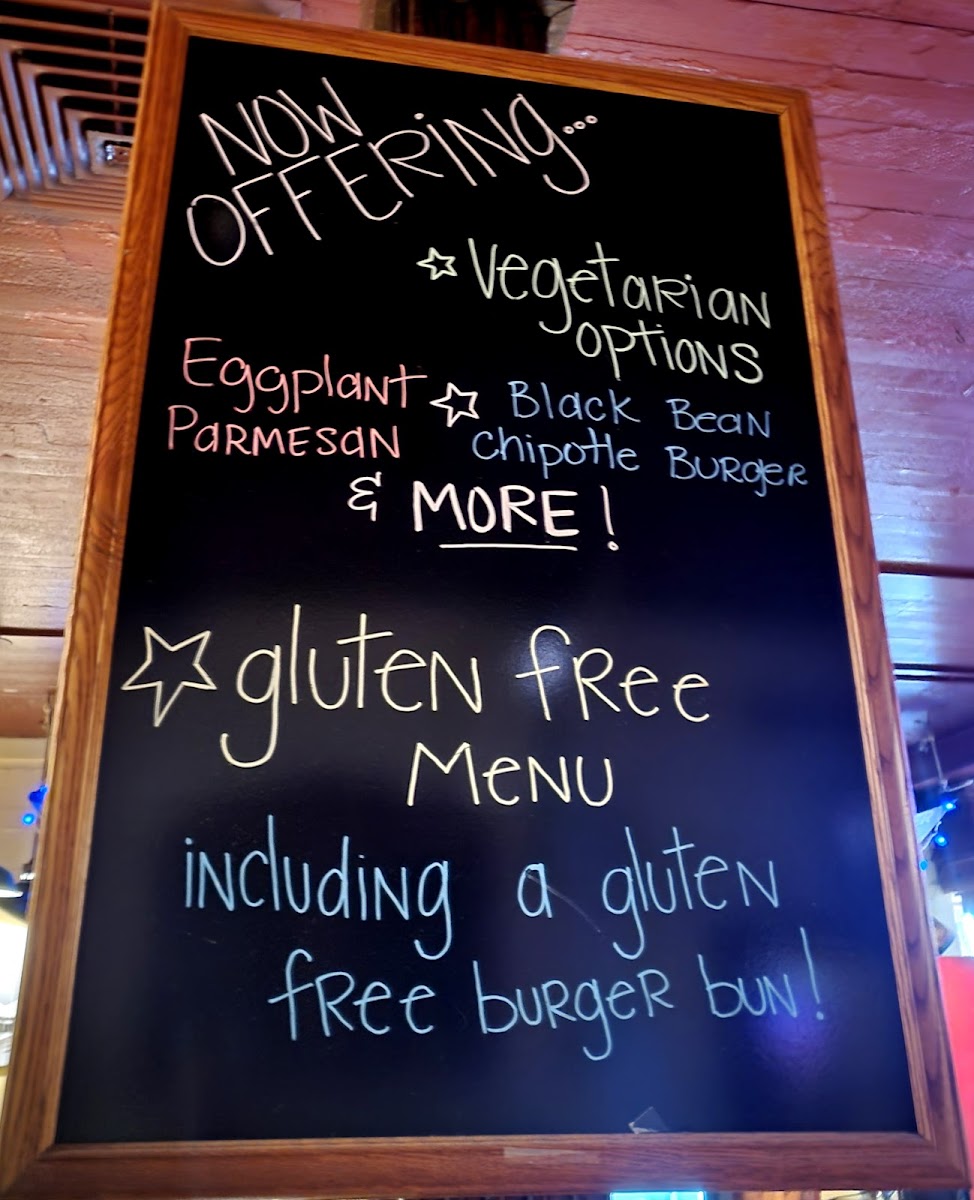 NOW
OFFERING...
☆ Vegetarian
options
Eggplant
Parmesan
☆ Black Bean
Chipotle Burger
& MORE!
☆ gluten free
Menu
including a gluten
free burger bun!